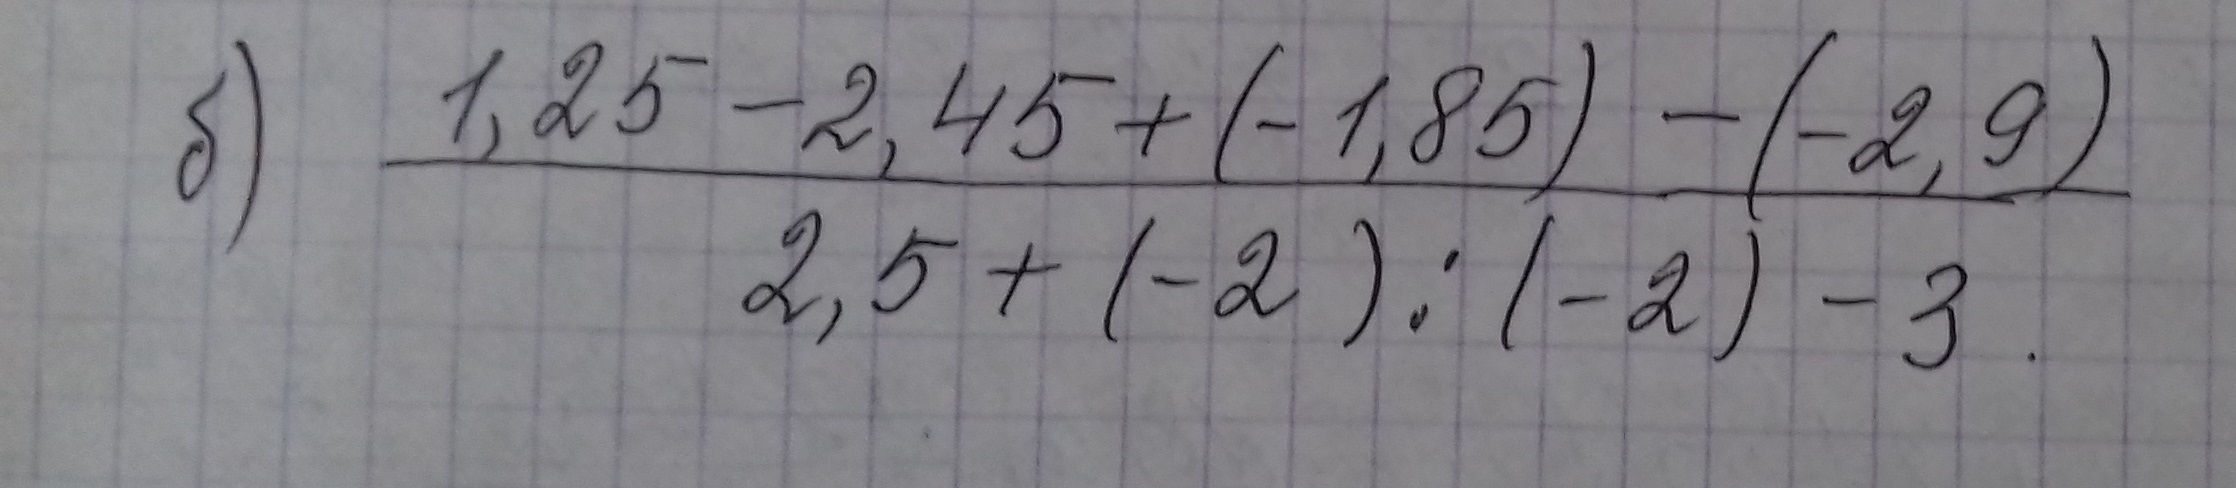 б) 1,25 - 2,45 + (-1,85) - (-2,9)
2,5 + (-2) : (-2) - 3.